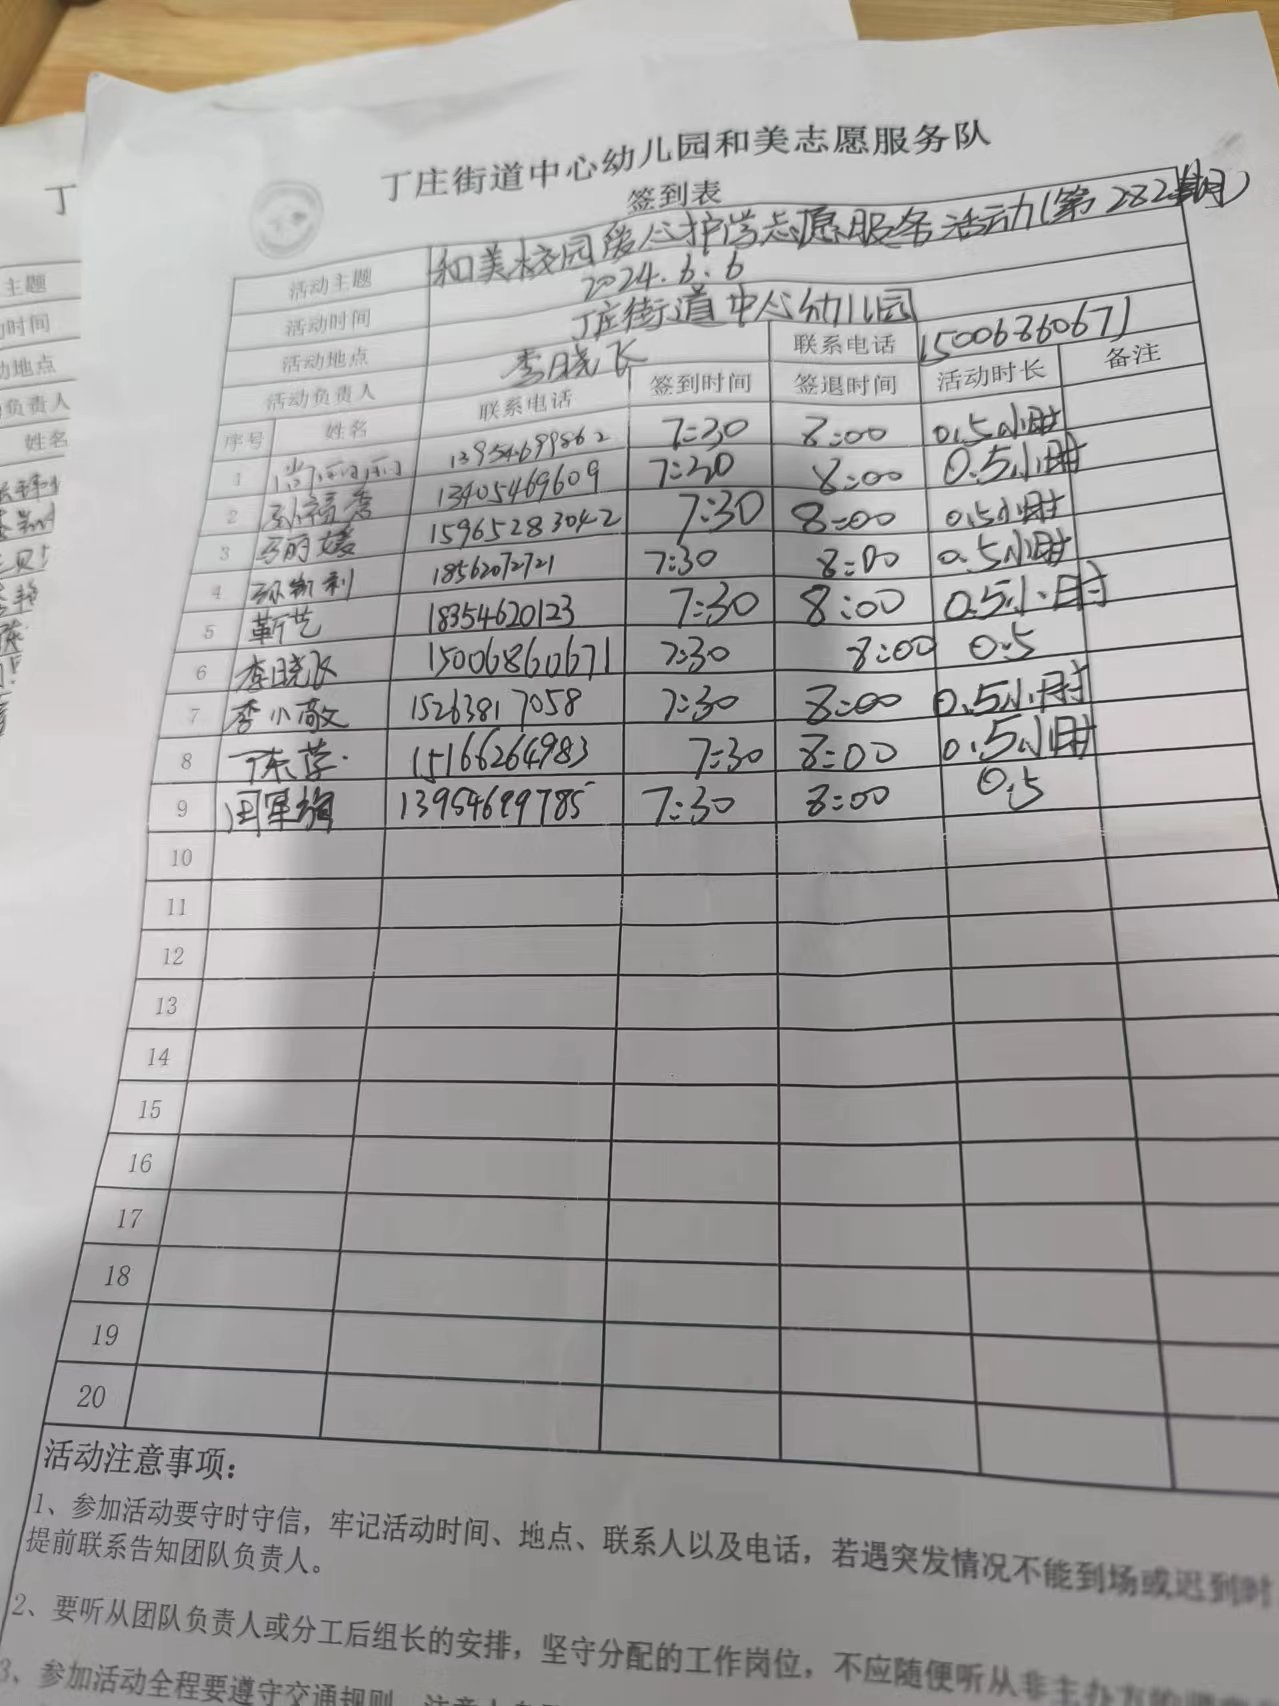 丁庄街道中心幼儿园和美志愿服务队
签到表
活动主题 和美校园爱心护学志愿服务活动(第282期)
活动时间 2024.6.6
活动地点 丁庄街道中心幼儿园
活动负责人 李晓飞 联系电话 15006860671
序号 姓名 联系电话 签到时间 签退时间 活动时长 备注
1 尚丽丽 13954699862 7:30 8:00 0.5小时
2 孙福香 13405469609 7:30 8:00 0.5小时
3 15965283042 7:30 8:00 0.5小时
4 18562072721 7:30 8:00 0.5小时
5 靳艺 18354620123 7:30 8:00 0.5小时
6 李晓飞 15006860671 7:30 8:00 0.5
7 李小敬 15263817058 7:30 8:00 0.5小时
8 15166264983 7:30 8:00 0.5小时
9 13954699785 7:30 8:00 0.5
10
11
12
13
14
15
16
17
18
19
20
活动注意事项:
1、参加活动要守时守信，牢记活动时间、地点、联系人以及电话，若遇突发情况不能到场或迟到时
提前联系告知团队负责人。
2、要听从团队负责人或分工后组长的安排，坚守分配的工作岗位，不应随便听从非主办方的
3、参加活动全程要遵守交通规则
丁
主题
时间
地点
负责人
姓名